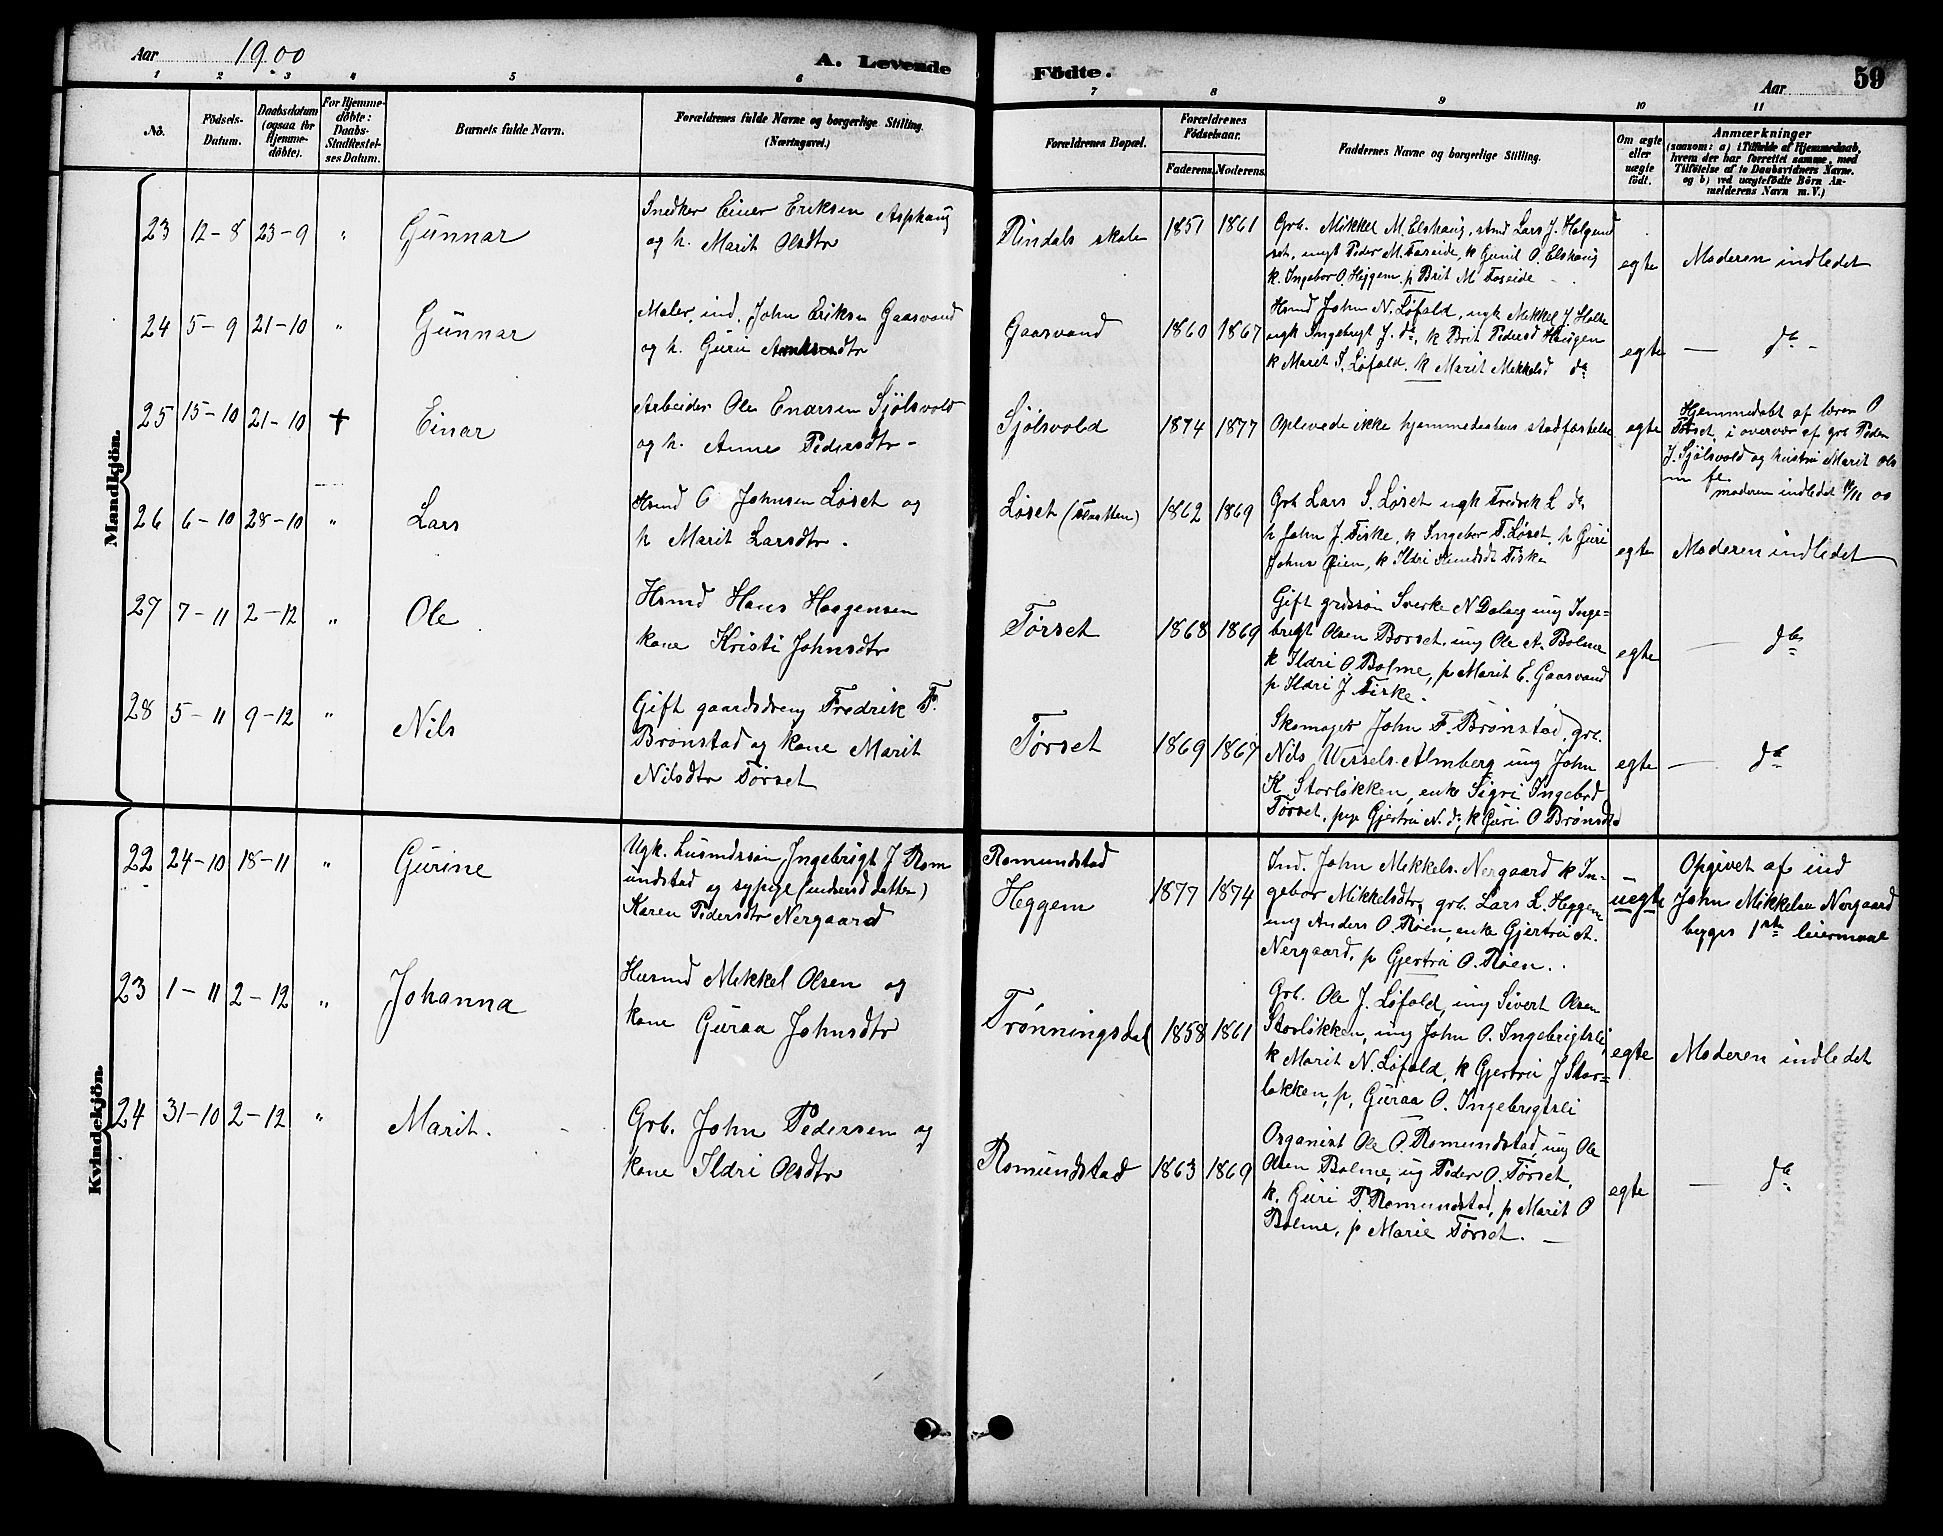 Aar 1900
A. Levende
Födte.
Aar
59
1 2 3 4 5 6 7 8 9 10 11
No.
Födsels-
Datum.
Daabsdatum
(ogsaa for
Hjemme-
döbte).
For Hjemme-
döbte:
Daabs-
Stadfæstel-
ses Datum.
Barnets fulde Navn.
Forældrenes fulde Navne og borgerlige Stilling.
(Næringsvei.)
Forældrenes Bopæl.
Forældrenes
Födselsaar.
Faderens. Moderens.
Faddernes Navne og borgerlige Stilling.
Om ægte
eller
uægte
födt.
Anmærkninger
(saasom: a) i Tilfælde af Hjemmedaab,
hvem der har forrettet samme, med
Tilföielse af to Daabsvidners Navne.
og b) ved uægtefödte Börn An-
melderens Navn m. V.)
Mandkjön.
23 12-8 23-9 " Gunnar
Snedker Einer Eriksen Asphaug
og h. Marit Olsdtr
Rindals skole 1851 1861
Grb. Mikkel M. Elshaug, smd Lars J. Halgund
set, ungk Peder M. Faseide, k Gunil O. Elshaug
k. Ingebor O. Heggem, p Brit M Faseide
egte
Moderen indledet
24 5-9 21-10 " Gunnar
Maler, ind. John Eriksen Gaasvand
og h. Guri
Gaasvand 1860 1867
Hsmd John N. Løfald, ugk Mikkel J. Holte
ugk Ingebrigt J. do, k Brit Pedersd Haugen
k Maret S. Løfald, k Marit Mikkelsd do
egte
— do —
25 15-10 21-10 † Einar
Arbeider Ole Enarsen Sjølsvold
og h. Anne Pedersdtr -
Sjølsvold 1874 1877
Oplevede ikke hjemmedaabens stadfæstelse
egte
Hjemmedøbt af lærer O
Tørset, i overvær af grb Peder
J. Sjølsvold og hustru Marit Ols
m fl.
moderen indledet 11/11 00
26 6-10 28-10 " Lars
Hsmd O Johnsen Løset og
h Marit Larsdtr.
Løset 1862 1869
Grb Lars S. Løset ugk Fredrik L do
h John J. Fiske, k Ingebor F. Løset, p Guri
Johns Øien, k Ildri Fiske
egte
Moderen indledet
27 7-11 2-12 " Ole
Hsmd Hans Haagensen
kone Kristi Johnsdtr
Tørset 1868 1869
Gift grdssøn Sverke N Dalseg ung Inge-
brigt Olsen Børset, ung Ole A. Bolme
k Ildri O Bolme, p Marit E. Gaasvand
p Ildri J Fiske.
egte
— do
28 5-11 9-12 " Nils
Gift gaardsdreng Fredrik F.
Brønstad og kone Marit
Nilsdtr Tørset
Tørset 1869 1867
Skomager John F. Brønstad, grb.
Nils Wessels Almberg ung John
K Storløkken, enke Sigri Ingebrd
Tørset, pige Gjertru N. do, k Guri O Brønstad
egte
— do
Kvindekjön.
22 24-10 18-11 " Gurine
Ugk. husmdssøn Ingebrigt J Rom
undstad og sypige (inderstdatter)
Karen Pedersdtr Nergaard
Romundstad
Heggem 1877 1874
Ind. John Mikkels. Nergaard k In-
gebor Mikkelsdtr, grb. Lars L. Heggem
ung Anders O. Røen, enke Gjertru A.
Nergaard, p Gjertru O. Røen.
uegte
Opgivet af ind
John Mikkelsen Nergaard
begges 1ste leiermaal
23 1-11 2-12 " Johanna
Husmd Mikkel Olsen og
kone Guraa Johnsdtr
Trønningsdal 1858 1861
Grb. Ole J. Løfald, ung Sivert Olsen
Storløkken, ung John O. Ingebrigtsli,
k Marit N. Løfald, k Gjertru J Stor-
løkken, p, Guraa O. Ingebrigtsli
egte
Moderen indledet
24 31-10 2-12 " Marit.
Grb. John Pedersen og
kone Ildri Olsdtr
Romundstad 1863 1869
Organist Ole O. Romundstad, ung Ole
Olsen Bolme, ug Peder O. Tørset,
k. Guri P. Romundstad, p Marit O
Bolme, p Marie Tørset. —
egte
— do